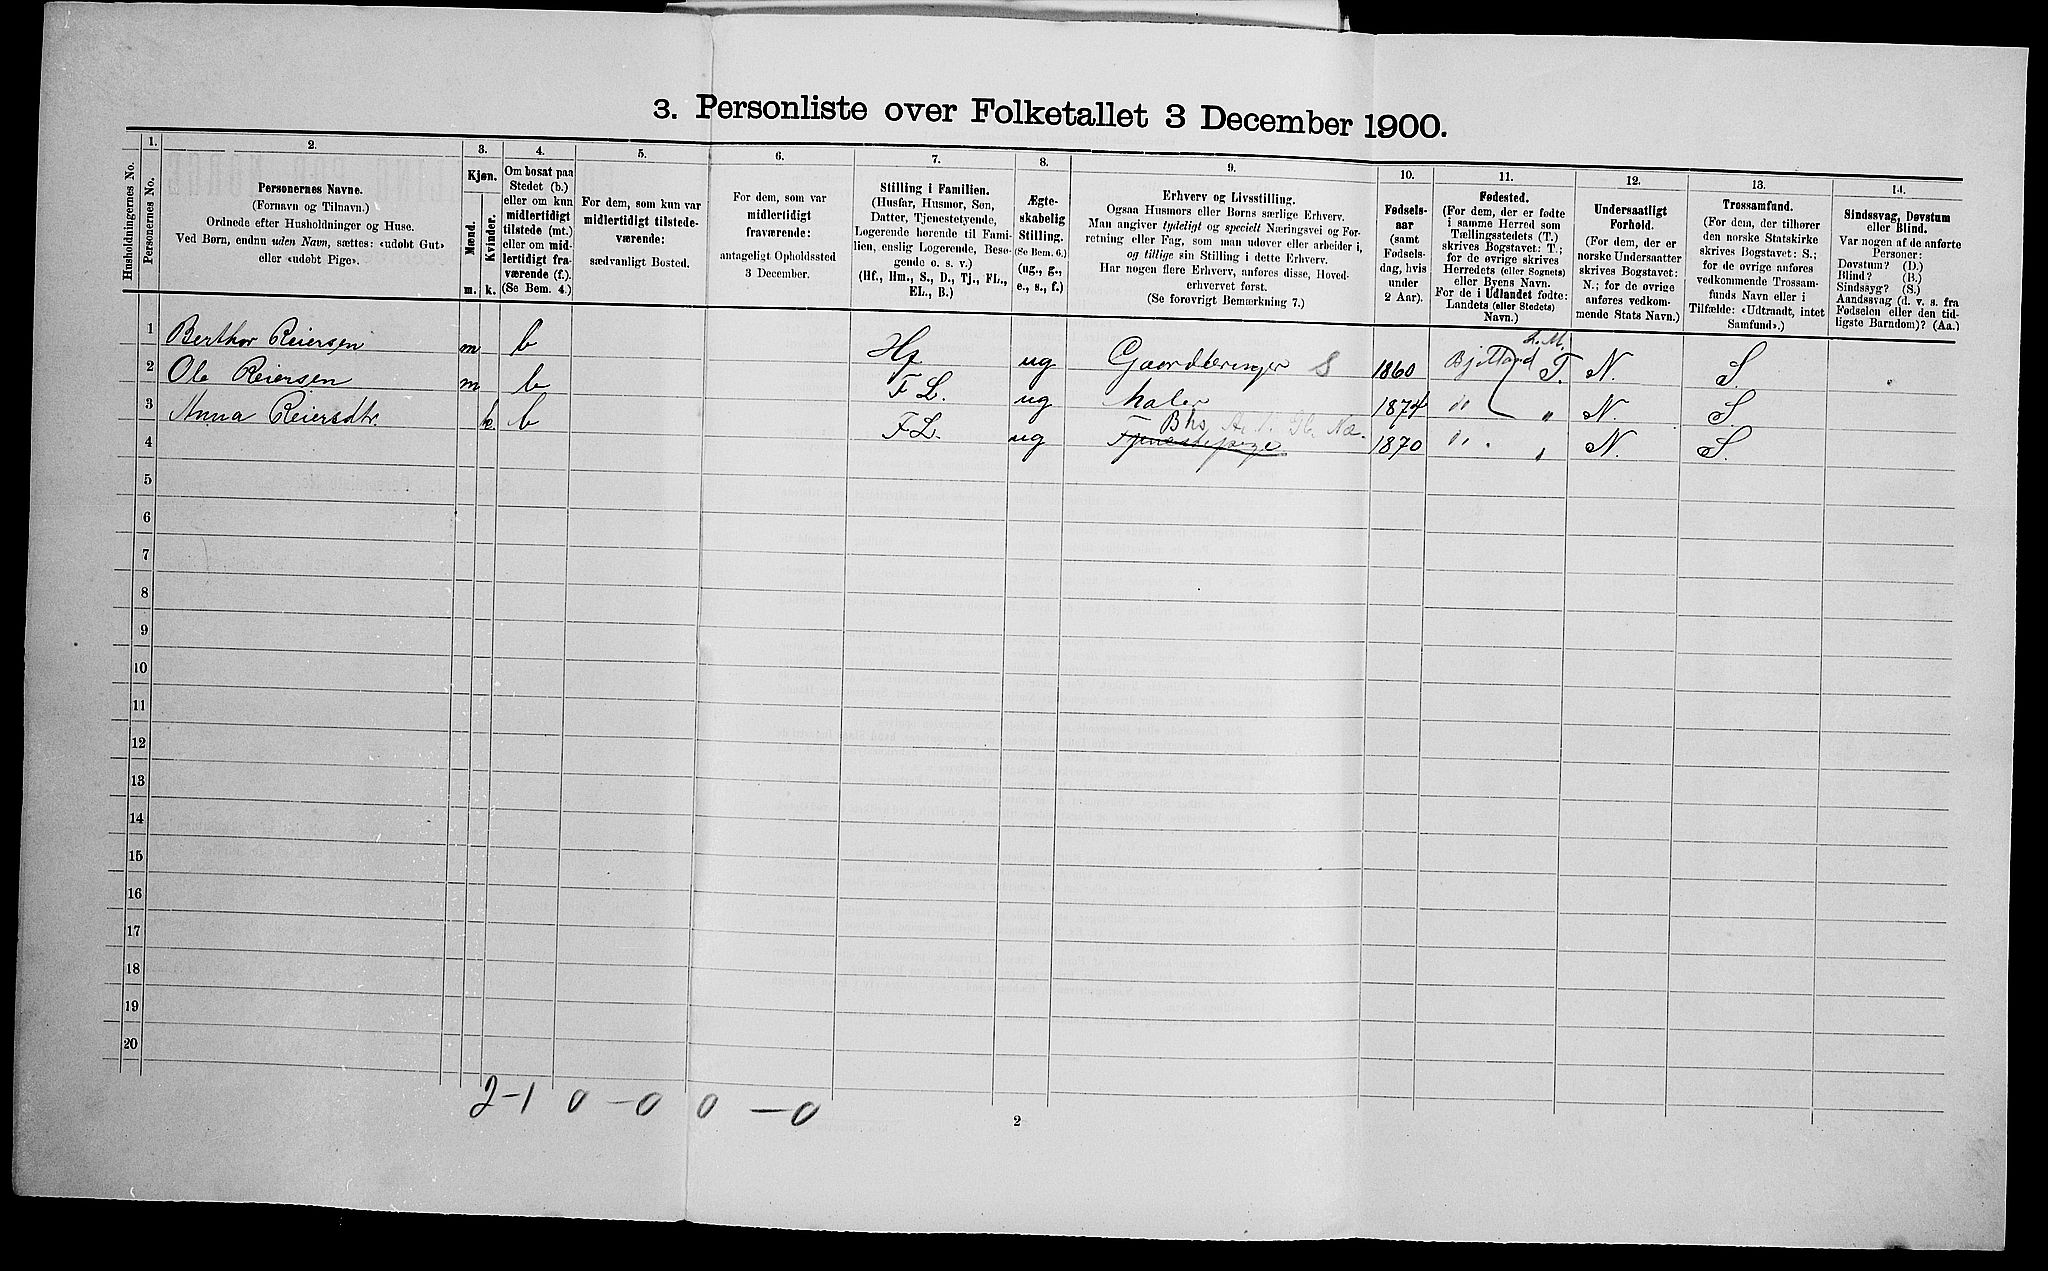 3. Personliste over Folketallet 3 December 1900.
Husholdningernes No.
1.
Personernes No.
2.
Personernes Navne.
(Fornavn og Tilnavn.)
Ordnede efter Husholdninger og Huse.
Ved Børn, endnu uden Navn, sættes: «udøbt Gut»
eller «udøbt Pige».
3.
Kjøn.
Mænd.
Kvinder.
m. k.
4.
Om bosat paa
Stedet (b.)
eller om kun
midlertidigt
tilstede (mt.)
eller om mid-
lertidigt fra-
værende (f.).
(Se Bem. 4.)
5.
For dem, som kun var
midlertidigt tilstede-
værende:
sædvanligt Bosted.
6.
For dem, som var
midlertidigt
fraværende:
antageligt Opholdssted
3 December.
7.
Stilling i Familien.
(Husfar, Husmor, Søn,
Datter, Tjenestetyende,
Logerende hørende til Fami-
lien, enslig Logerende, Besø-
gende o. s. v.)
(Hf., Hm., S., D., Tj., FL.,
EL., B.)
8.
Ægte-
skabelig
Stilling.
(Se Bem. 6.)
(ug., g.,
e., s., f.)
9.
Erhverv og Livsstilling.
Ogsaa Husmors eller Børns særlige Erhverv.
Man angiver tydeligt og specielt Næringsvei og For-
retning eller Fag, som man udøver eller arbeider i,
og tillige sin Stilling i dette Erhverv.
Har nogen flere Erhverv, anføres disse, Hoved-
erhvervet først.
(Se forøvrigt Bemærkning 7.)
10.
Fødsels-
aar
(samt
Fødsels-
dag, hvis
under
2 Aar).
11.
Fødested.
(For dem, der er fødte
i samme Herred som
Tællingsstedets (T.)
skrives Bogstavet: T.;
for de øvrige skrives
Herredets (eller Sognets)
eller Byens Navn.
For de i Udlandet fødte:
Landets (eller Stedets)
Navn.)
12.
Undersaatligt
Forhold.
(For dem, der er
norske Undersaatter
skrives Bogstavet:
N.; for de øvrige
anføres vedkom-
mende Stats Navn.)
13.
Trossamfund.
(For dem, der tilhører
den norske Statskirke
skrives Bogstavet: S.;
for de øvrige anføres
vedkommende Trossam-
funds Navn eller i
Tilfælde: «Udtraadt, intet
Samfund».)
14.
Sindssvag, Døvstum
eller Blind.
Var nogen af de anførte
Personer:
Døvstum? (D.)
Blind? (B.)
Sindssyg? (S.)
Aandssvag (d. v. s. fra
Fødselen eller den tid-
ligste Barndom)? (Aa.)
1 Berthor Reiersen m b Hf ug Gaardbruger S 1860 Bjelland T. N. S.
2 Ole Reiersen m b FL. ug Maler 1874 " " N. S.
3 Anna Reiersdtr. k. b FL. ug Tjenestepige 1870 " " N. S.
4
5
6
7
8
9
10
11
12
13
14
15
16
17
18
19
20
2-1 0-0 0-0
2